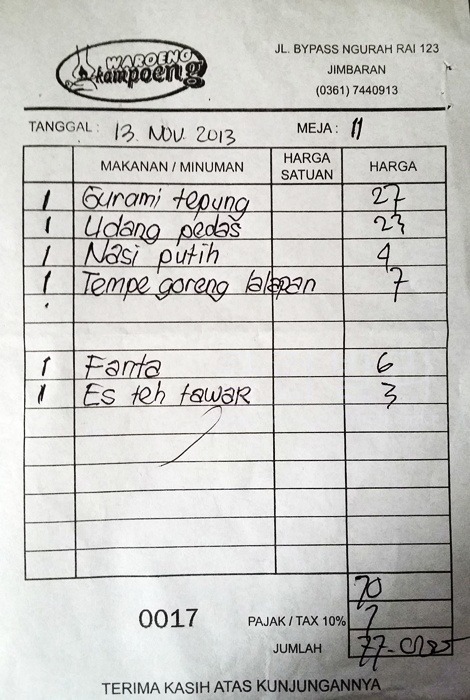 WAROENG
kampoeng
JL. BYPASS NGURAH RAI 123
JIMBARAN
(0361) 7440913
TANGGAL : 13 NOV. 2013 MEJA : 11
MAKANAN / MINUMAN HARGA SATUAN HARGA
1 Gurami tepung 27
1 Udang pedas 23
1 Nasi putih 4
1 Tempe goreng lalapan 7
1 Fanta 6
1 Es teh tawar 3
70
0017 PAJAK / TAX 10% 7
JUMLAH 77-
TERIMA KASIH ATAS KUNJUNGANNYA